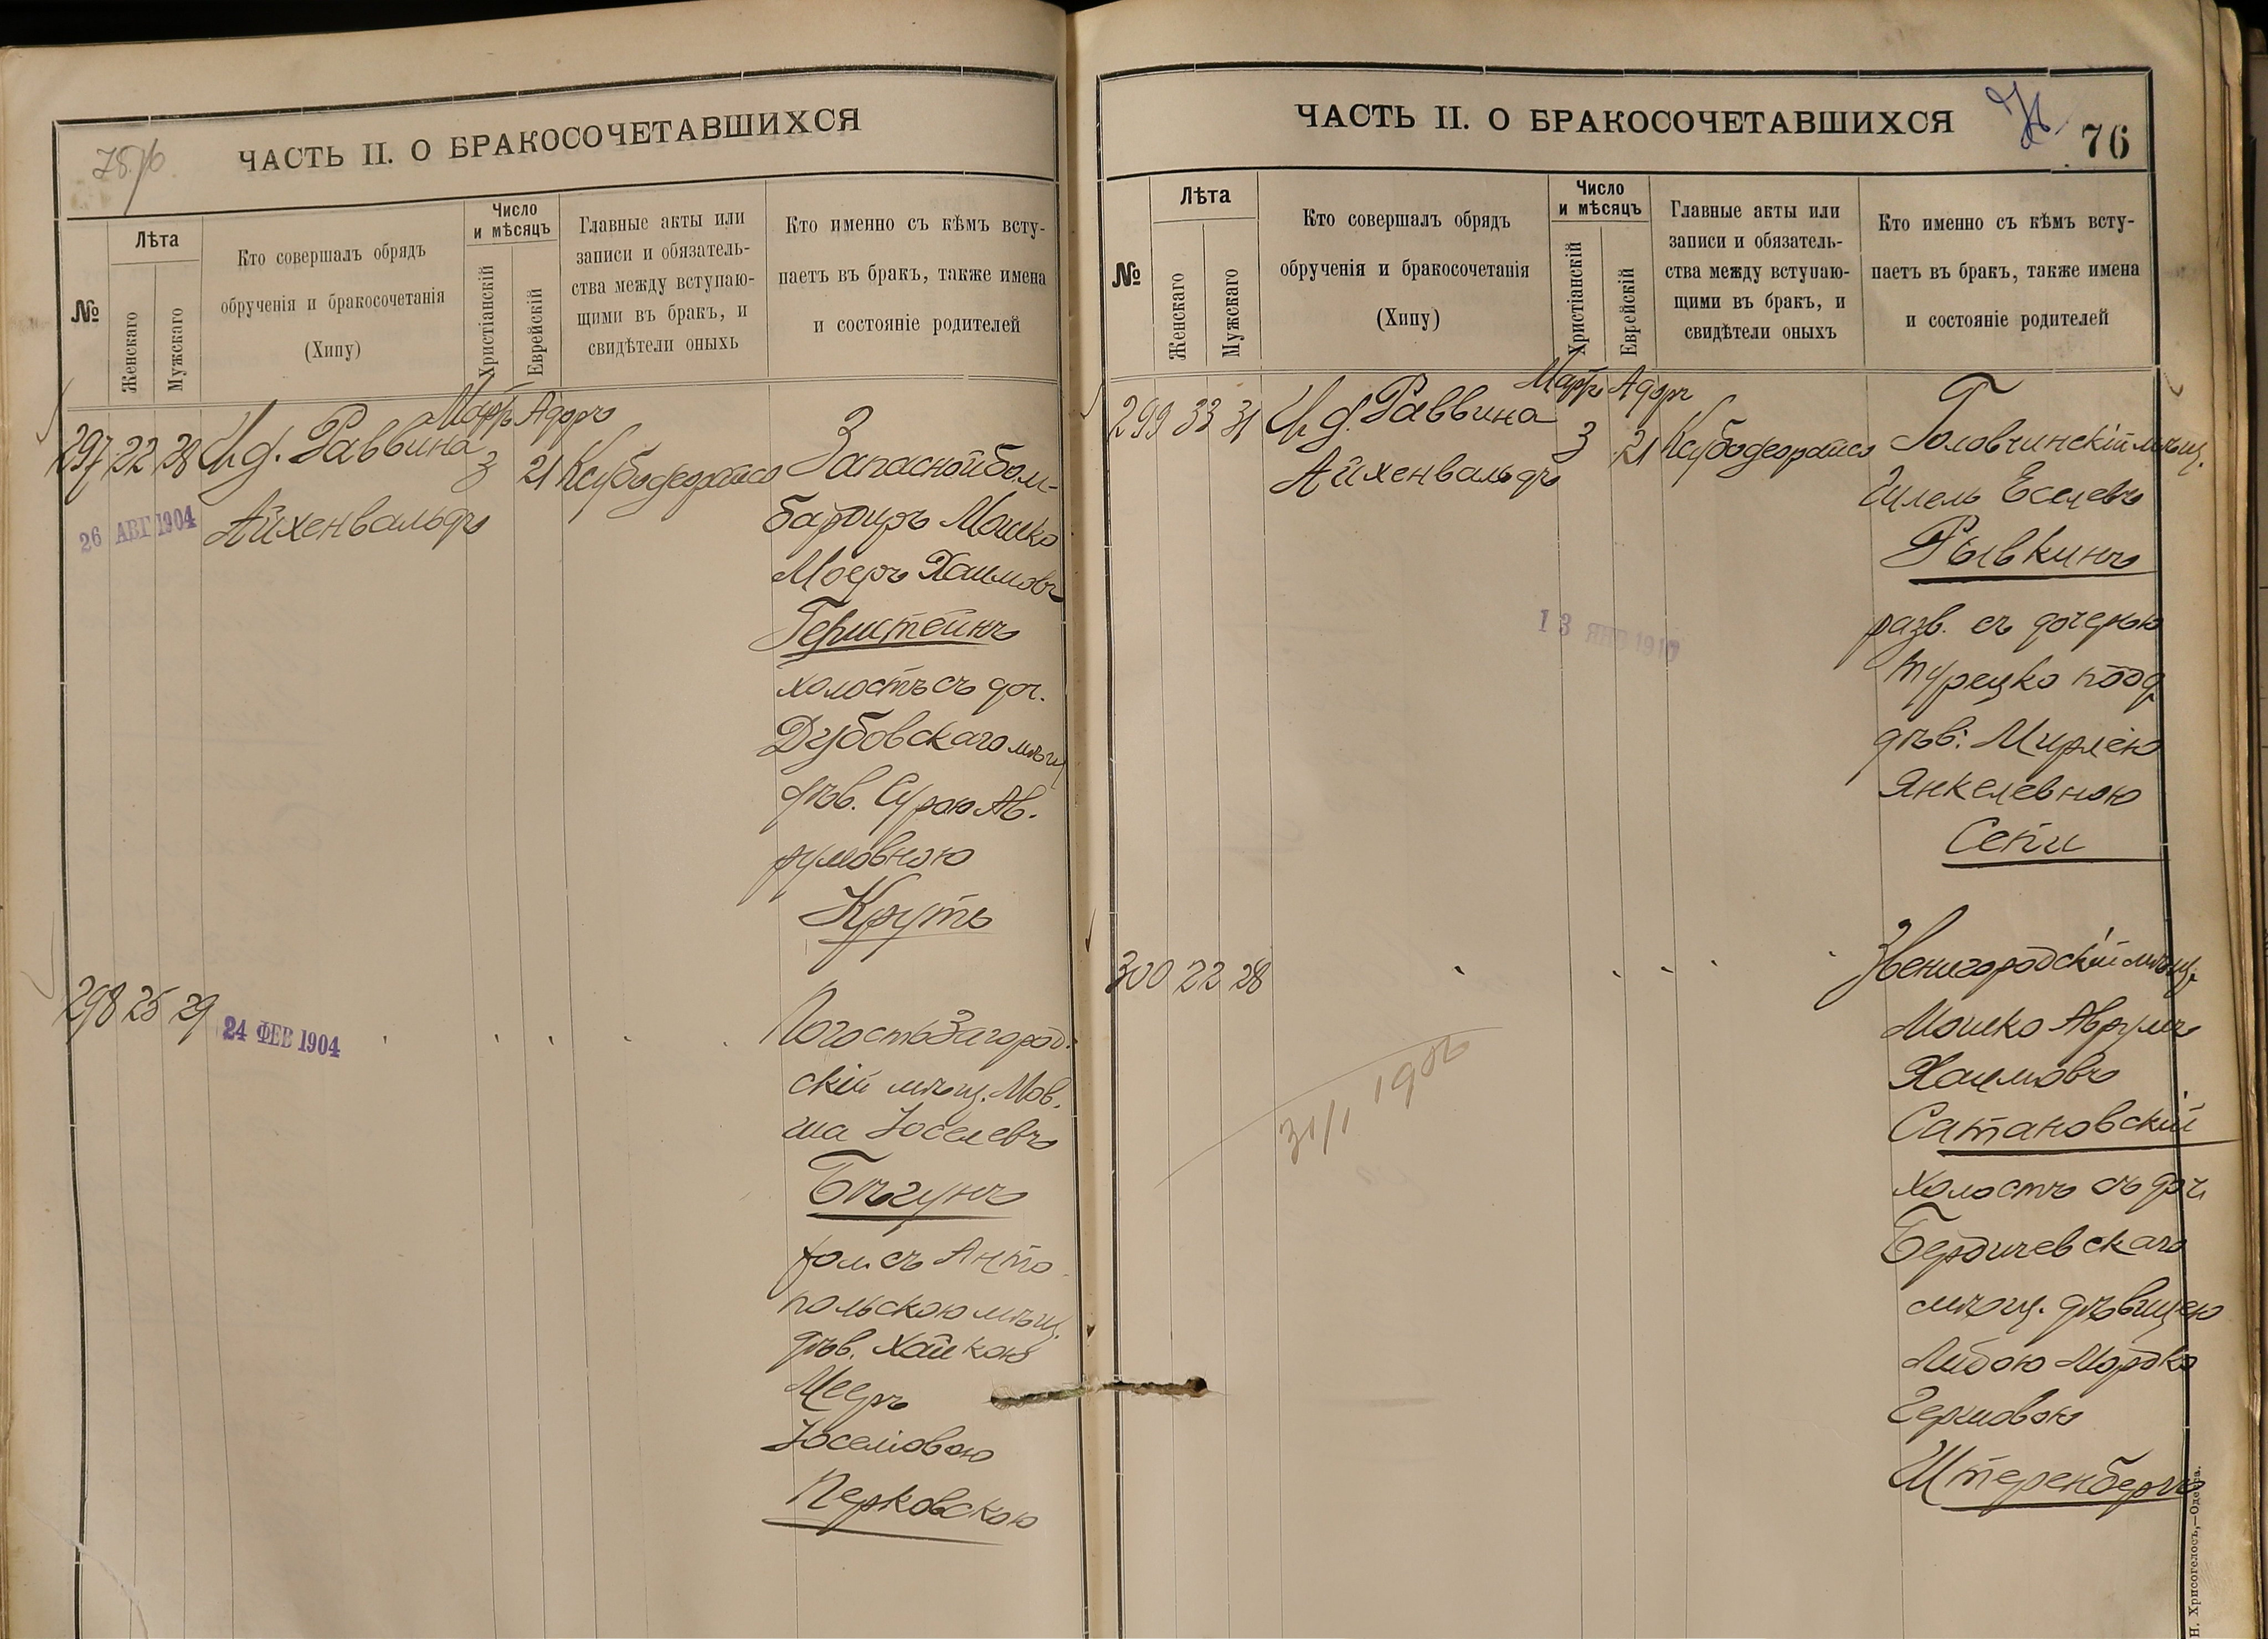 75/б
ЧАСТЬ II. О БРАКОСОЧЕТАВШИХСЯ
№
Лѣта
Женскаго
Мужскаго
Кто совершалъ обрядъ
обрученія и бракосочетанія
(Хипу)
Число
и мѣсяцъ
Христіанскій
Еврейскій
Главные акты или
записи и обязатель-
ства между вступаю-
щими въ бракъ, и
свидѣтели оныхъ
Кто именно съ кѣмъ всту-
паетъ въ бракъ, также имена
и состояніе родителей
Мартъ Адоръ
297 22 28 И. д. Раввина 3 21 Запасной бом-
26 АВГ 1904 Айхенвальдъ
бардиръ Мошко
Моеръ Хаимовъ
Герштейнъ
холостъ съ доч.
Дубовскаго мѣщ
дѣв. Сурою Ав-
румовною
Крутъ
298 25 29
24 ФЕВ 1904
Погостъ Загород-
скій мѣщ. Мов-
ша Іоселевъ
Бѣгунъ
хол. съ Анто
польскою мѣщ.
дѣв. Хайкою
Мееръ
Іоселіовою
Перковскою
ЧАСТЬ II. О БРАКОСОЧЕТАВШИХСЯ
76
76
№
Лѣта
Женскаго
Мужскаго
Кто совершалъ обрядъ
обрученія и бракосочетанія
(Хипу)
Число
и мѣсяцъ
Христіанскій
Еврейскій
Главные акты или
записи и обязатель-
ства между вступаю-
щими въ бракъ, и
свидѣтели оныхъ
Кто именно съ кѣмъ всту-
паетъ въ бракъ, также имена
и состояніе родителей
Мартъ Адоръ
299 33 31 И. д. Раввина 3 21 Головчинскій мѣщ.
Айхенвальдъ
Гилель Еселевъ
Рывкинъ
13 ЯНВ 1910
разв. съ дочерью
турецко подд
дѣв: Мирлею
Янкелевною
Сепи
300 22 28 Звенигородскій мѣщ.
Мошко Аврумъ
Хаимовъ
31/I 1906
Сатановскій
холостъ съ доч.
Бердичевскаго
мѣщ. дѣвицею
Либою Мордко
Гершовою
Штеренбергъ
Н. Хрисогелосъ,—Одесса.